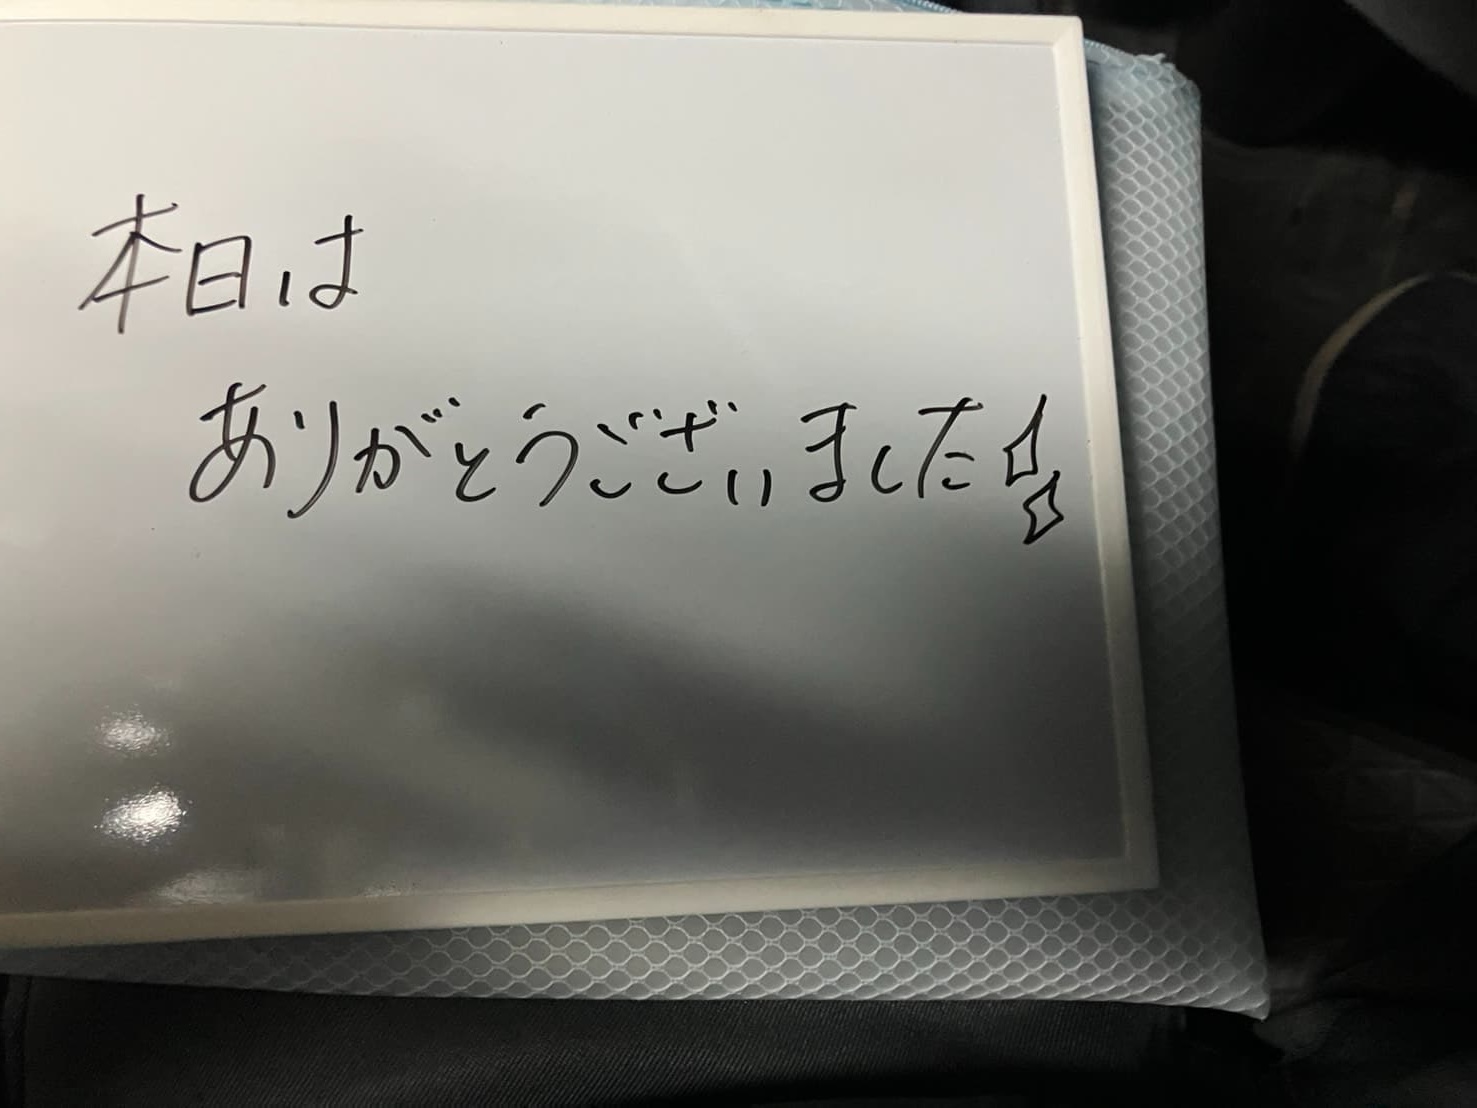 本日は
ありがとうございました